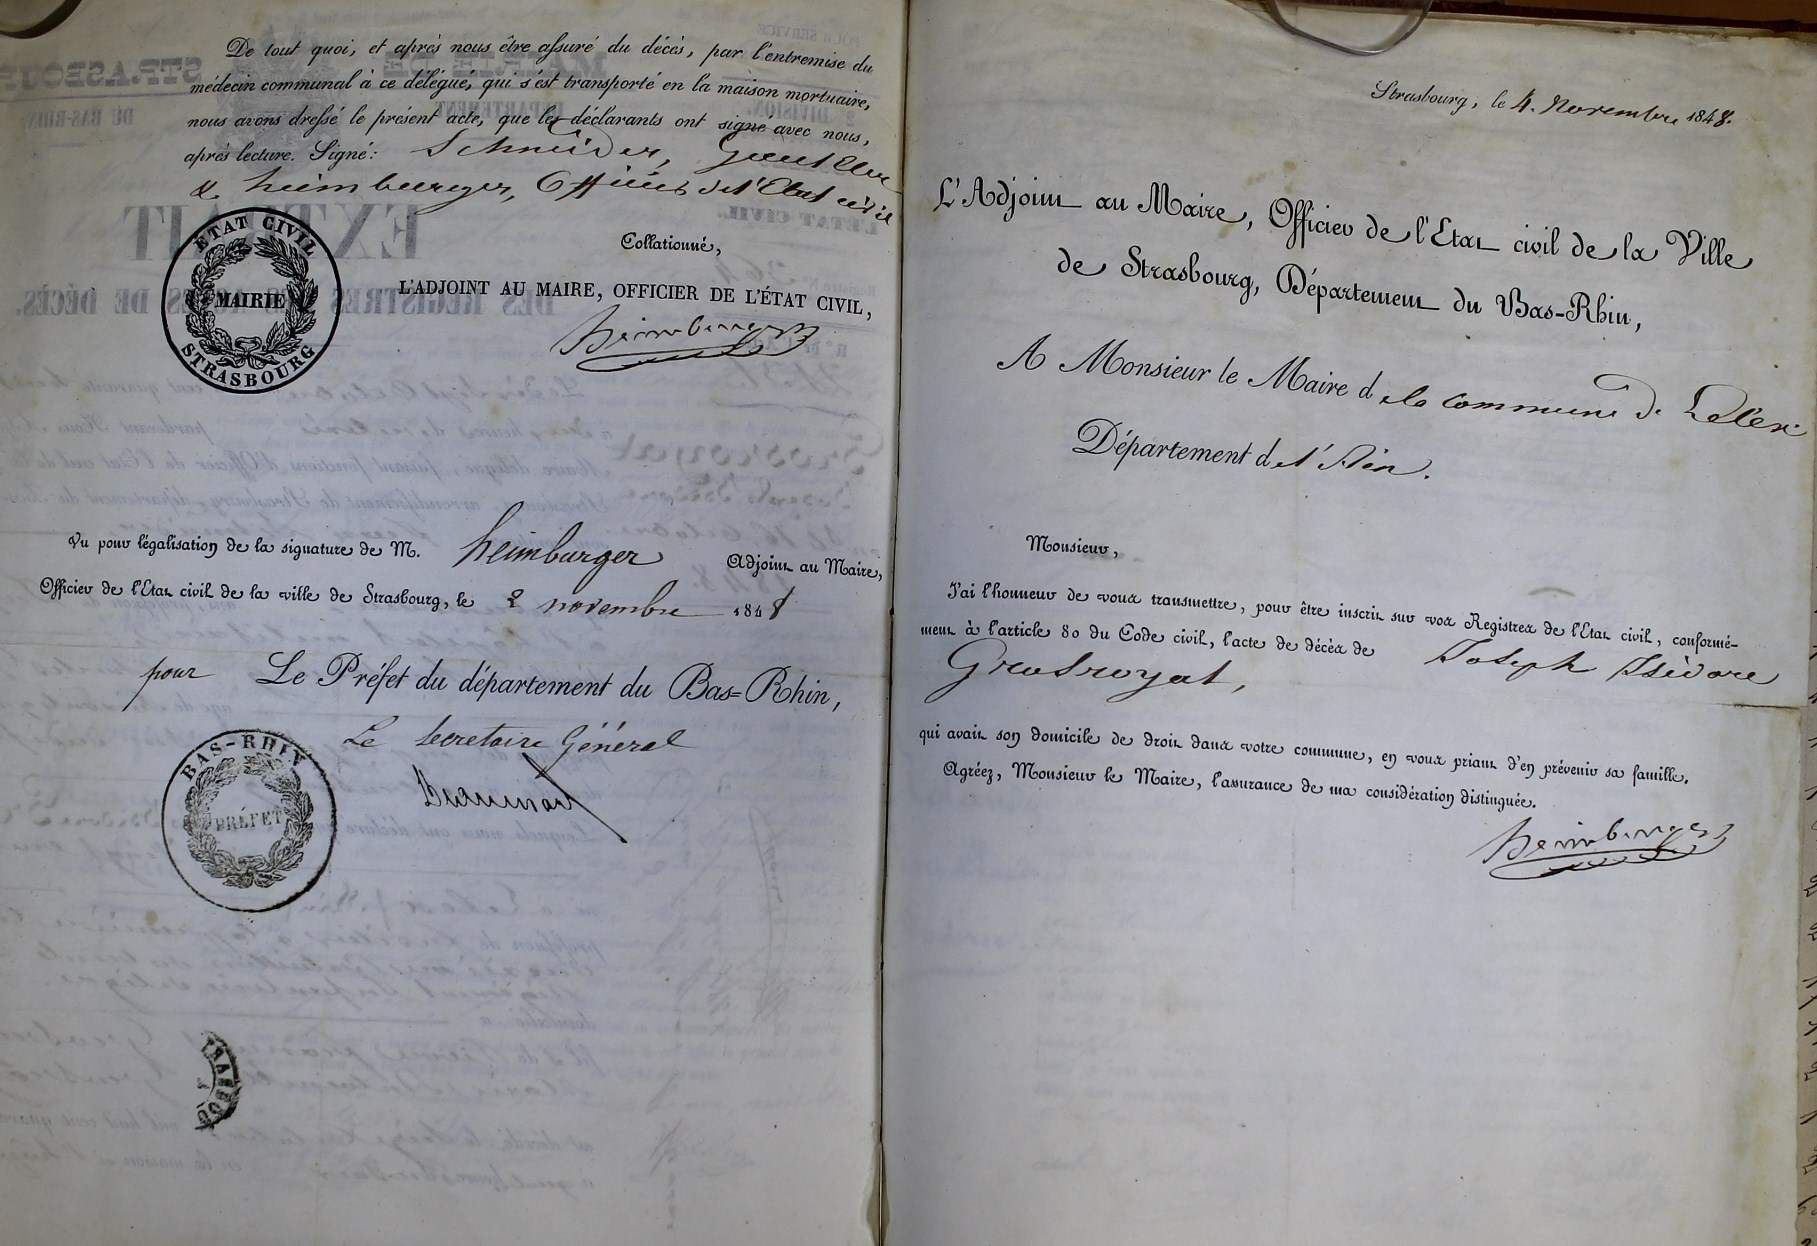 De tout quoi, et après nous être assuré du décès, par l'entremise du
médecin communal à ce délégué, qui s'est transporté en la maison mortuaire,
nous avons dressé le présent acte, que les déclarants ont signé avec nous,
après lecture. Signé: Schneider,
& heimburger, Officier de l'Etat civil
ÉTAT CIVIL
MAIRIE
STRASBOURG
Collationné,
L'ADJOINT AU MAIRE, OFFICIER DE L'ÉTAT CIVIL,
Heimburger
Vu pour légalisation de la signature de M. heimburger Adjoint au Maire,
Officier de l'Etat civil de la ville de Strasbourg, le 2 novembre 1848
pour Le Préfet du département du Bas=Rhin,
Le Secretaire Général
BAS-RHIN
PRÉFET
Strasbourg, le 4. Novembre 1848.
L'Adjoint au Maire, Officier de l'Etat civil de la Ville
de Strasbourg, Département du Bas-Rhin,
A Monsieur le Maire de la commune de Lélex
Département de l'Ain.
Monsieur,
J'ai l'honneur de vous transmettre, pour être inscrit sur vos Registres de l'Etat civil, conformé-
ment à l'article 80 du Code civil, l'acte de décès de Joseph Isidore
Grosroyat,
qui avait son domicile de droit dans votre commune, en vous priant d'en prévenir sa famille.
Agréez, Monsieur le Maire, l'assurance de ma considération distinguée.
Heimburger